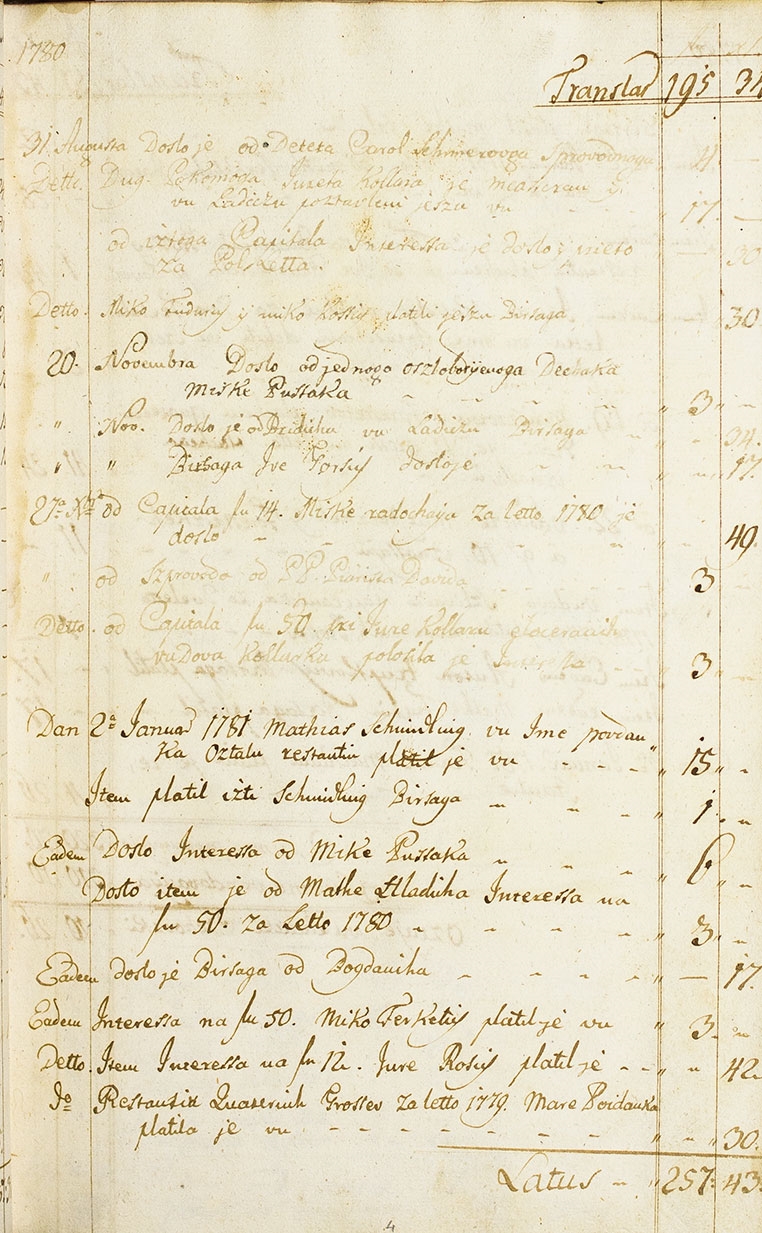 1780
Translat 195 34
31. Augusta Doslo je od Deteta Carol Schmerovoga Sprovodnoga 4 —
Detto. Dug Jureta Kollara je
vu Ladiczu poztavleni jeszu vu 17. —
od iztoga Capitala Interessa je doslo y vneto — 30
za
Detto. Miko y miko Kossich platili jeszu Birsaga 30.
20. Novembra Doslo od jednoga oszlobodjenoga Dechaka
Miske Pussaka 3 "
" Nov. Doslo je od vu Ladiczu Birsaga 34.
" " Birsaga Ive Forsich doslo je 17.
27a Nov od Capitala fu 14. Miske radochaja za letto 1780 je
doslo 49.
" od Szprovoda od P.P. Davida 3
Detto. od Capitala fu 50. pri Jure Kollaru
vudova Kollarka polosila je Interessa 3
Dan 2a Januar 1781 Mathias Schindling vu Ime
ka Oztalu restantiu platil je vu " 15 "
Item platil izti Schindling Birsaga " 1. "
Eadem Doslo Interessa od Mike Pussaka " 6 "
Doslo item je od Mathe Hladicha Interessa na
fu 50. za Letto 1780 " 3 "
Eadem doslo je Birsaga od Bogdanicha " — 17.
Eadem Interessa na fu 50. Miko Ferketich platil je vu " 3. "
Detto. Item Interessa na fu 12. Jure Rosich platil je " " 42.
Do Restantii Quaternih Grossev za letto 1779. Mare
platila je vu " " 30.
Latus " 257. 43.
4